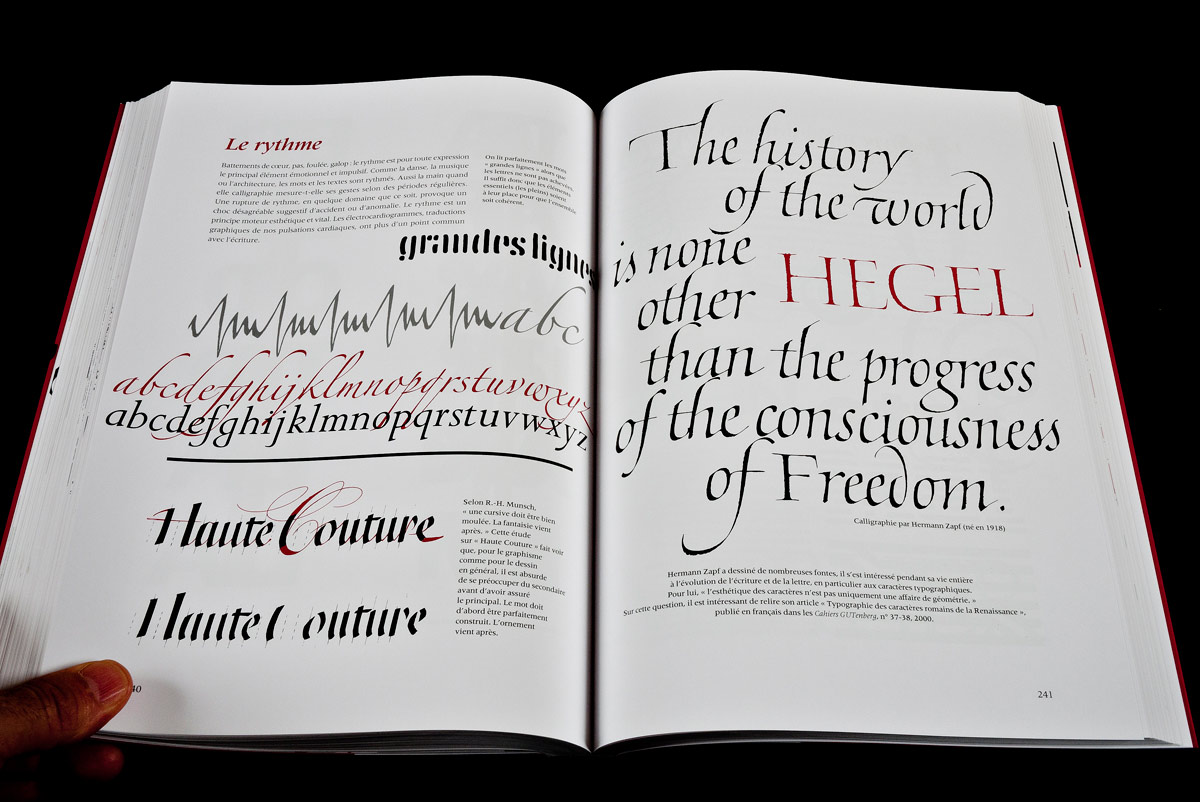 Le rythme
Battements de cœur, pas, foulée, galop : le rythme est pour toute expression
le principal élément émotionnel et impulsif. Comme la danse, la musique
ou l'architecture, les mots et les textes sont rythmés. Aussi la main quand
elle calligraphie mesure-t-elle ses gestes selon des périodes régulières.
Une rupture de rythme, en quelque domaine que ce soit, provoque un
choc désagréable suggestif d'accident ou d'anomalie. Le rythme est un
principe moteur esthétique et vital. Les électrocardiogrammes, traductions
graphiques de nos pulsations cardiaques, ont plus d'un point commun
avec l'écriture.
On lit parfaitement les mots
« grandes lignes » alors que
les lettres ne sont pas achevées.
Il suffit donc que les éléments
essentiels (les pleins) soient
à leur place pour que l'ensemble
soit cohérent.
grandes lignes
abc
abcdefghijklmnopqrstuvwxyz
abcdefghijklmnopqrstuvwxyz
Haute Couture
Selon R.-H. Munsch,
« une cursive doit être bien
moulée. La fantaisie vient
après. » Cette étude
sur « Haute Couture » fait voir
que, pour le graphisme
comme pour le dessin
en général, il est absurde
de se préoccuper du secondaire
avant d'avoir assuré
le principal. Le mot doit
d'abord être parfaitement
construit. L'ornement
vient après.
Haute Couture
40
The history
of the world
is none
other
HEGEL
than the progress
of the consciousness
of Freedom.
Calligraphie par Hermann Zapf (né en 1918)
Hermann Zapf a dessiné de nombreuses fontes, il s'est intéressé pendant sa vie entière
à l'évolution de l'écriture et de la lettre, en particulier aux caractères typographiques.
Pour lui, « l'esthétique des caractères n'est pas uniquement une affaire de géométrie. »
Sur cette question, il est intéressant de relire son article « Typographie des caractères romains de la Renaissance »,
publié en français dans les Cahiers GUTenberg, n° 37-38, 2000.
241